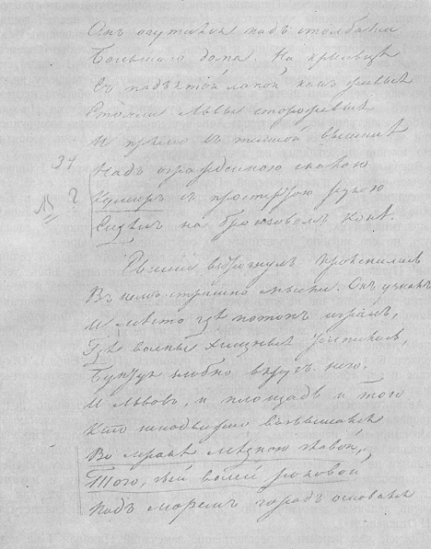 Онъ очутился подъ столбами
Большаго дома. На крыльцѣ
Съ подъятой лапой какъ живые
Стояли львы сторожевые
И прямо въ темной вышинѣ
34
Надъ огражденною скалою
?
Кумиръ съ простертою рукою
Сидѣлъ на бронзовомъ конѣ.
Евгеній вздрогнулъ. Прояснились
Въ немъ страшно мысли. Онъ узналъ
И мѣсто гдѣ потопъ игралъ,
Гдѣ волны хищныя толпились,
Бунтуя злобно вкругъ него.
И львовъ, и площадь и того
Кто неподвижно возвышался
Во мракѣ мѣдною главой,
Того, чьей волей роковой
Надъ моремъ городъ основался